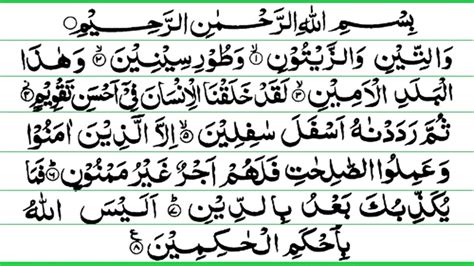 بِسْمِ اللهِ الرَّحْمٰنِ الرَّحِيْمِ
وَالتِّيْنِ وَالزَّيْتُوْنِ ۙ﴿۱﴾ وَطُوْرِ سِيْنِيْنَ ۙ﴿۲﴾ وَهٰذَا
الْبَلَدِ الْاَمِيْنِ ۙ﴿۳﴾ لَقَدْ خَلَقْنَا الْاِنْسَانَ فِيْۤ اَحْسَنِ تَقْوِيْمٍ ۫﴿۴﴾
ثُمَّ رَدَدْنٰهُ اَسْفَلَ سٰفِلِيْنَ ۙ﴿۵﴾ اِلَّا الَّذِيْنَ اٰمَنُوْا
وَعَمِلُوا الصّٰلِحٰتِ فَلَهُمْ اَجْرٌ غَيْرُ مَمْنُوْنٍ ؕ﴿۶﴾ فَمَا
يُكَذِّبُكَ بَعْدُ بِالدِّيْنِ ؕ﴿۷﴾ اَلَيْسَ اللهُ
بِاَحْكَمِ الْحٰكِمِيْنَ ﴿۸﴾ ع